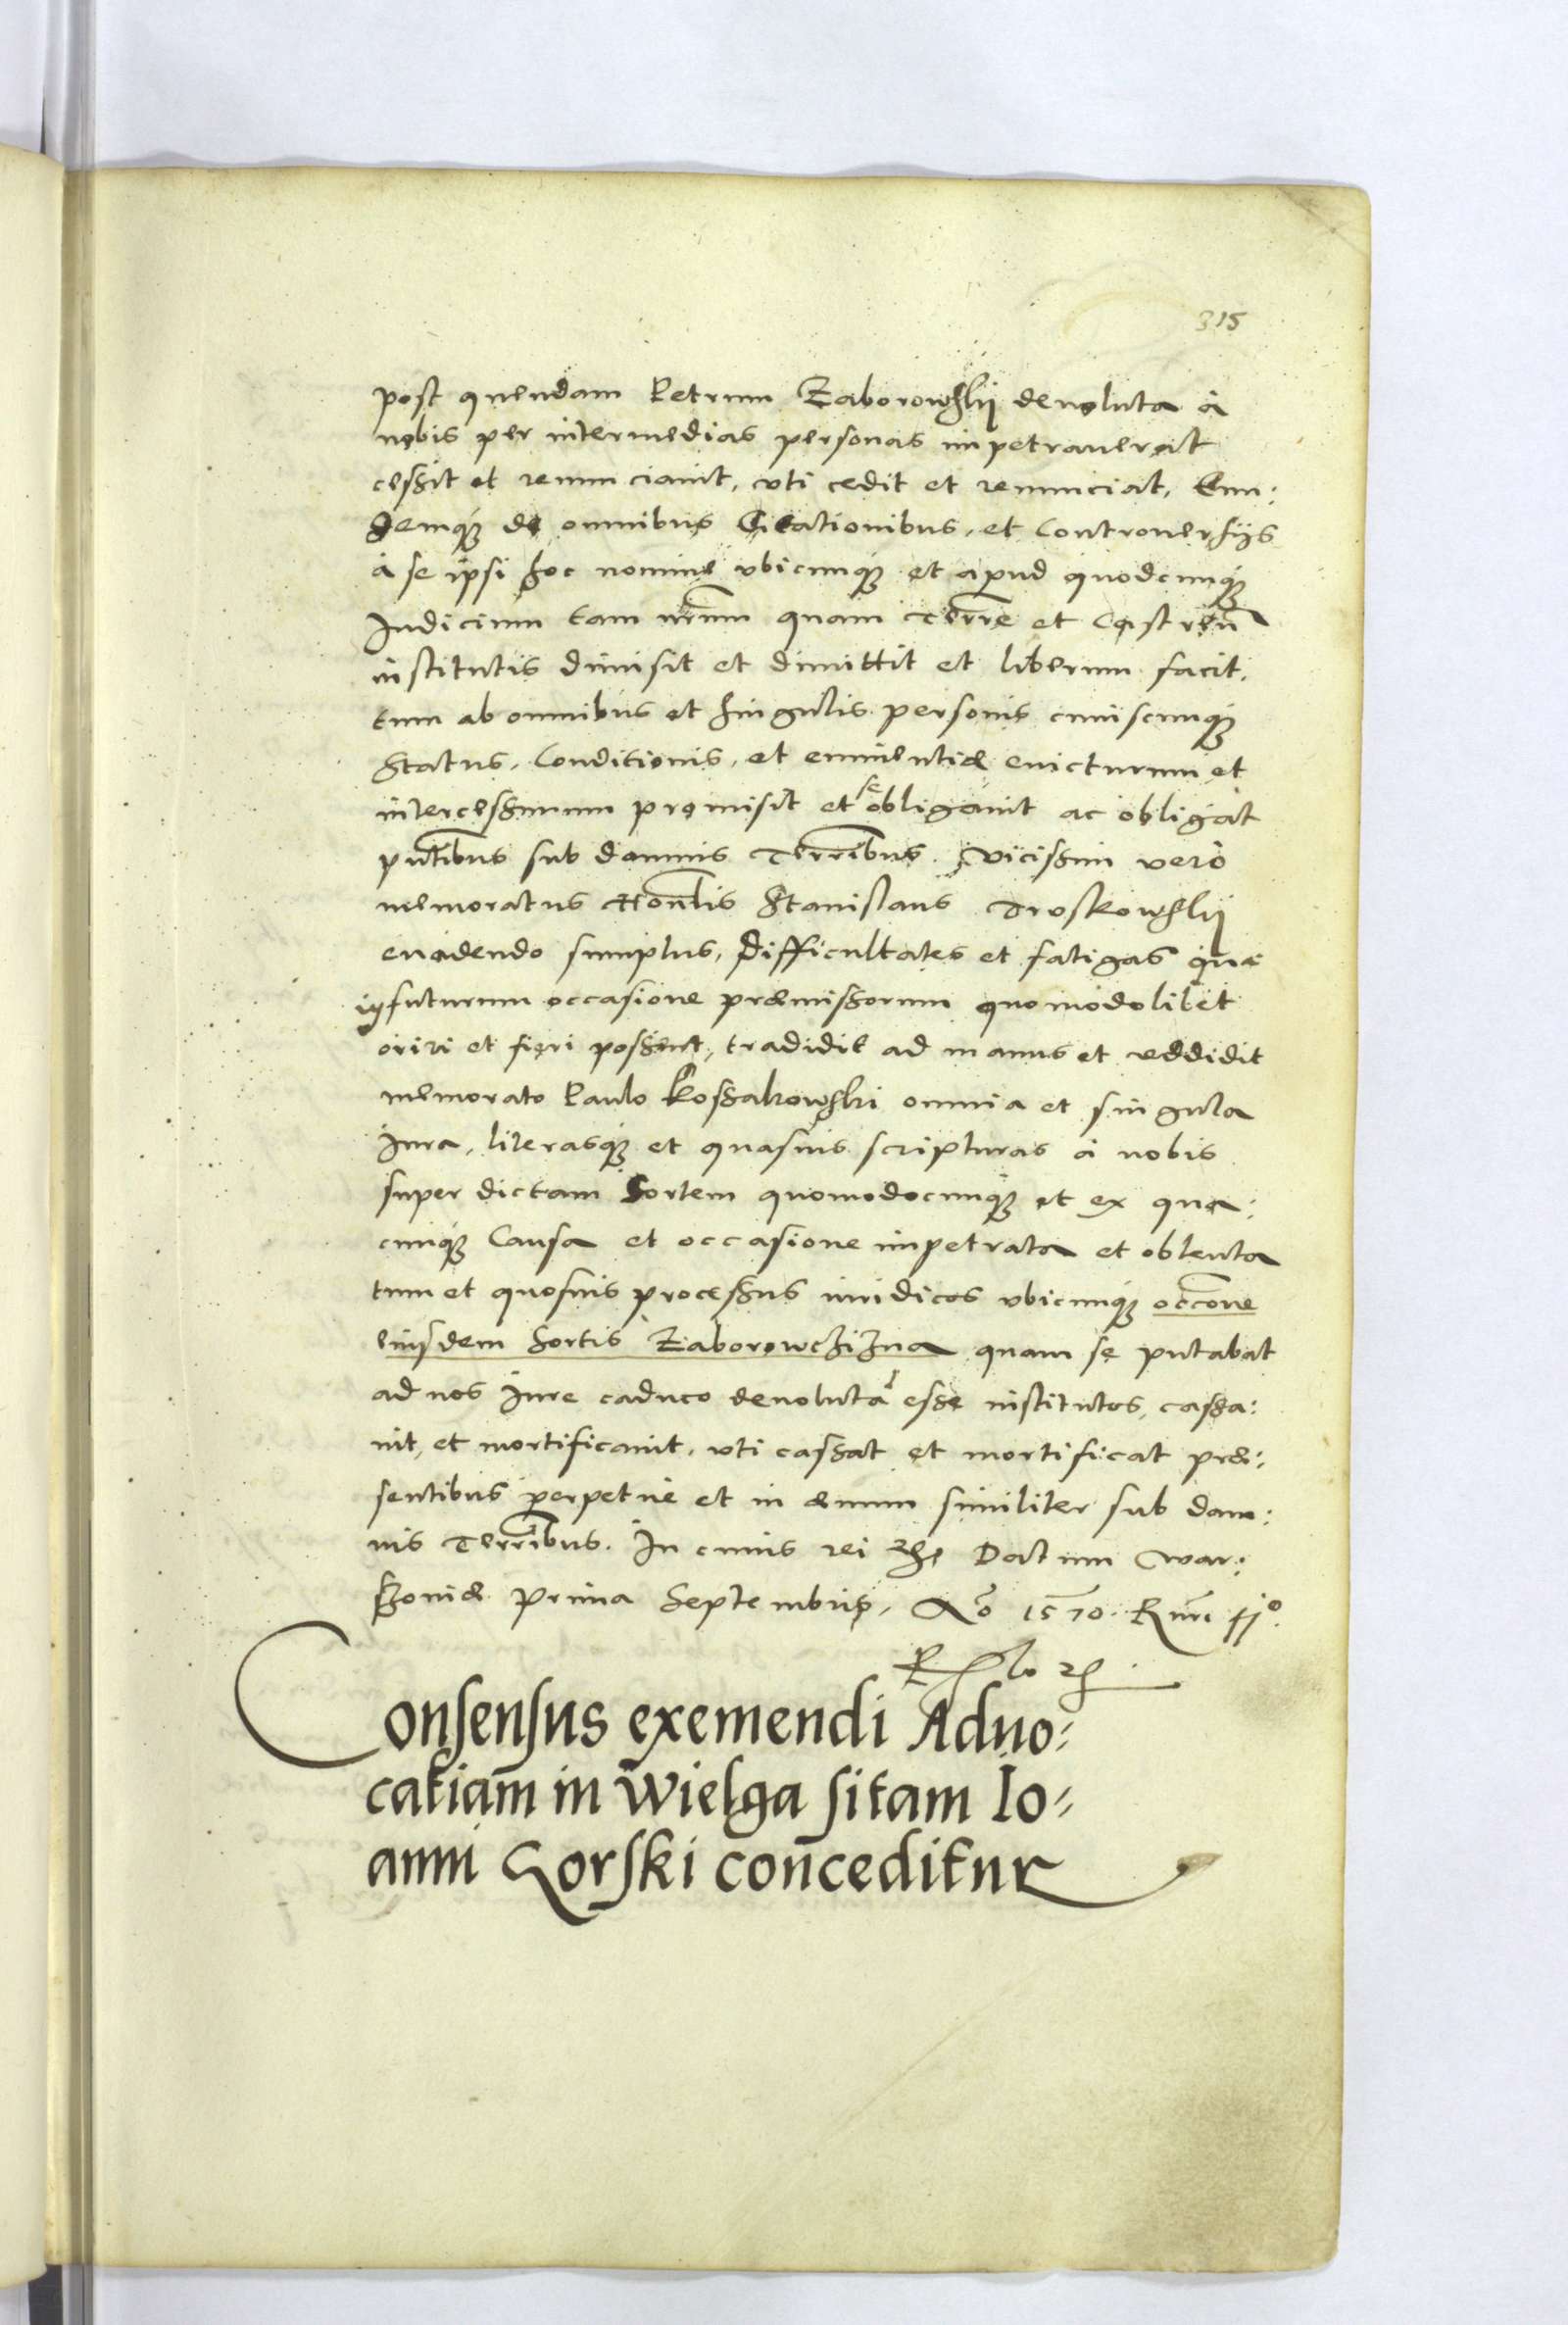 315
post quendam Petrum Zaborowskij deuoluta à
nobis per intermedias personas impetrauerat
cessit et renunciauit, vti cedit et renunciat, Eun:
demq́ue de omnibus Citationibus, et Controuersijs
à se ipsi hoc nomine vbicunq́ue et apud quodcunq́ue
Iudicium tam nr̃um quam Terrẽ et Castren̄
institutis dimisit et dimittit et liberum facit,
tum ab omnibus et singulis personis cuiuscunq́ue
Status, Conditionis, et eminentiæ euicturum et
intercessurum promisit et se obligauit ac obligat
pñtibus sub damnis Terrr̃ibus. Vicissim verò
memoratus Honẽlis Stanislaus Troskowskij
euadendo sumptus, Difficultates et fatigas quæ
in futurum occasione præmissorum quomodolibet
oriri et fieri possent, tradidit ad manus et reddidit
memorato Paulo Kossakowski omnia et singula
Iura, literasq́ue et quasuis scripturas à nobis
super dictam Sortem quomodocunq́ue et ex qua:
cunq́ue Causa et occasione impetrata et obtenta
tum et quosuis processus iuridicos vbicunq́ue occõne
eiusdem Sortis Zaborowczizna quam se putabat
ad nos Iure caduco deuolutã esse institutos, cassa:
uit, et mortificauit, vti cassat et mortificat præ:
sentibus perpetuè et in æuum similiter sub dam:
nis Terrr̃ibus. In cuius rei Datum War:
szouiæ prima Septembris, Aõ 1570. Rñri 41º.
Consensus exemendi Aduo:
catiam in Wielga sitam Io:
anni Gorski conceditur